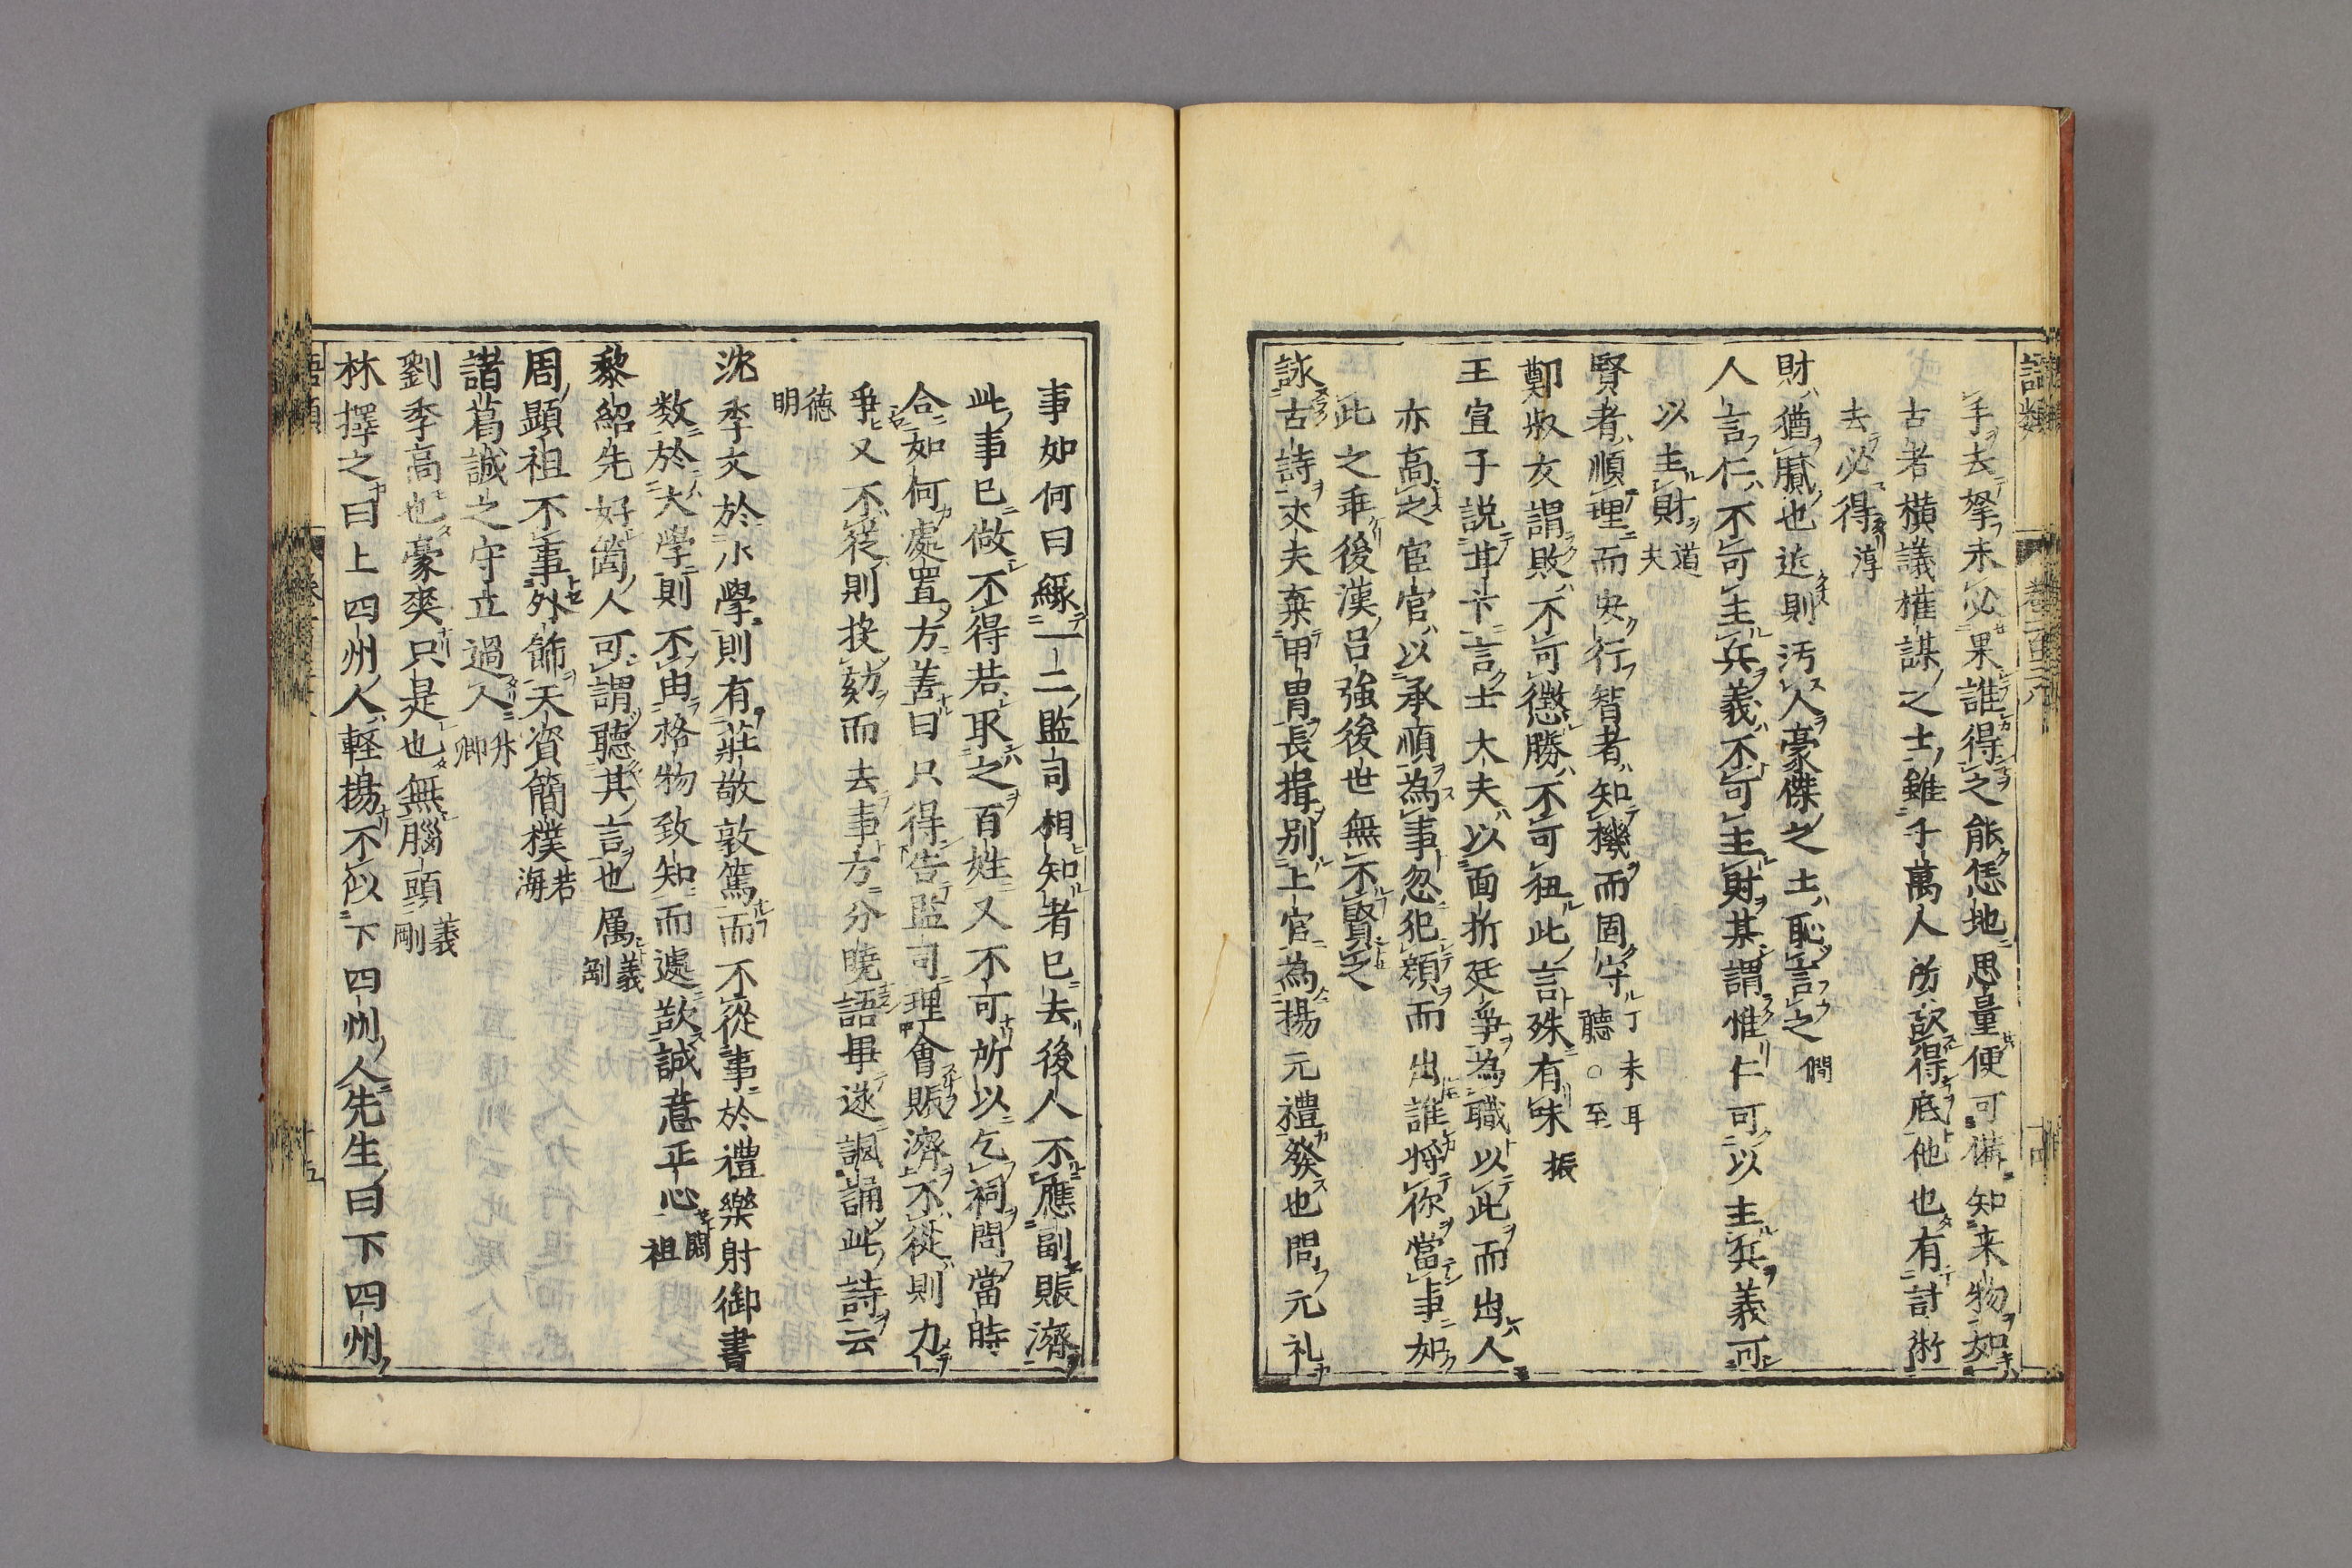 語類
卷一百三十八
十四
手去拏未必果誰得之能恁地思量便可備知来物如
古者橫議權謀之士雖千萬人所欲得底他也有計術
去必得淳
財猶膩也近則汚人豪傑之士恥言之僩
人言仁不可主兵義不可主財某謂惟仁可以主兵義可
以主財道夫
賢者順理而安行智者知機而固守聽○至
鄭叔友謂敗不可懲勝不可狃此言殊有味振
王宣子説甘卞言士大夫以面折廷爭為職以此而出人
亦高之宦官以承順為事忽犯顔而出誰將你當事如
此之乖後漢呂強後世無不賢之
詠古詩丈夫棄甲冑長揖別上官為揚元禮發也問元礼
事如何曰緣一二監司相知者已去後人不應副賑濟
此事已做不得若取之百姓又不可所以乞祠問當時
合如何處置方善曰只得告監司理會賑濟不從則力
爭又不從則投劾而去事方分曉語畢遂諷誦此詩云
德明
沈季文於小學則有莊敬敦篤而不從事於禮樂射御書
数於大學則不由格物致知而遽欲誠意正心閎祖
黎紹先好箇人可謂聽其言也厲義剛
周顯祖不事外飾天資簡樸若海
諸葛誠之守立過人升卿
劉季高也豪爽只是也無腦頭義剛
林擇之曰上四州人輕揚不似下四州人先生曰下四州
語類